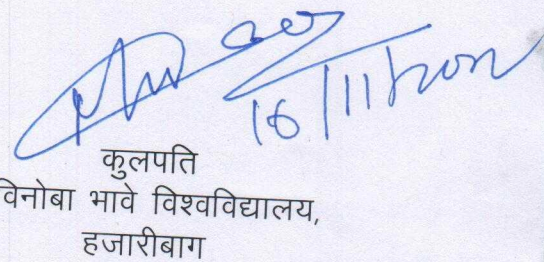 16/11/2022
कुलपति
विनोबा भावे विश्वविद्यालय,
हजारीबाग